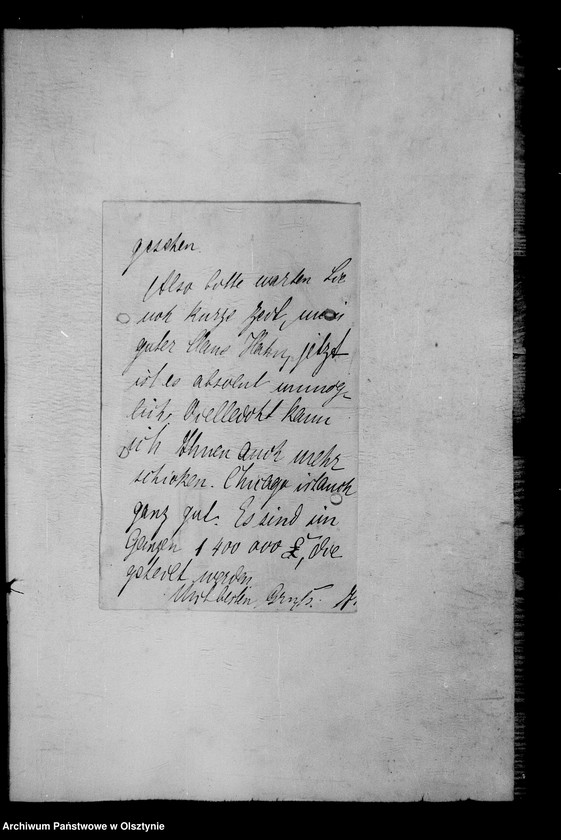 geschen.
Also bitte warten Sie
noch kurze Zeit, mein
guter Claus Hahn, jetzt
ist es absolut unmög-
lich, Vielleicht kann
ich Ihnen auch mehr
schicken. Chicago ist auch
ganz gut. Es sind im
Ganzen 1 400 000 £, die
geteilt werden
Mit besten
Archiwum Państwowe w Olsztynie